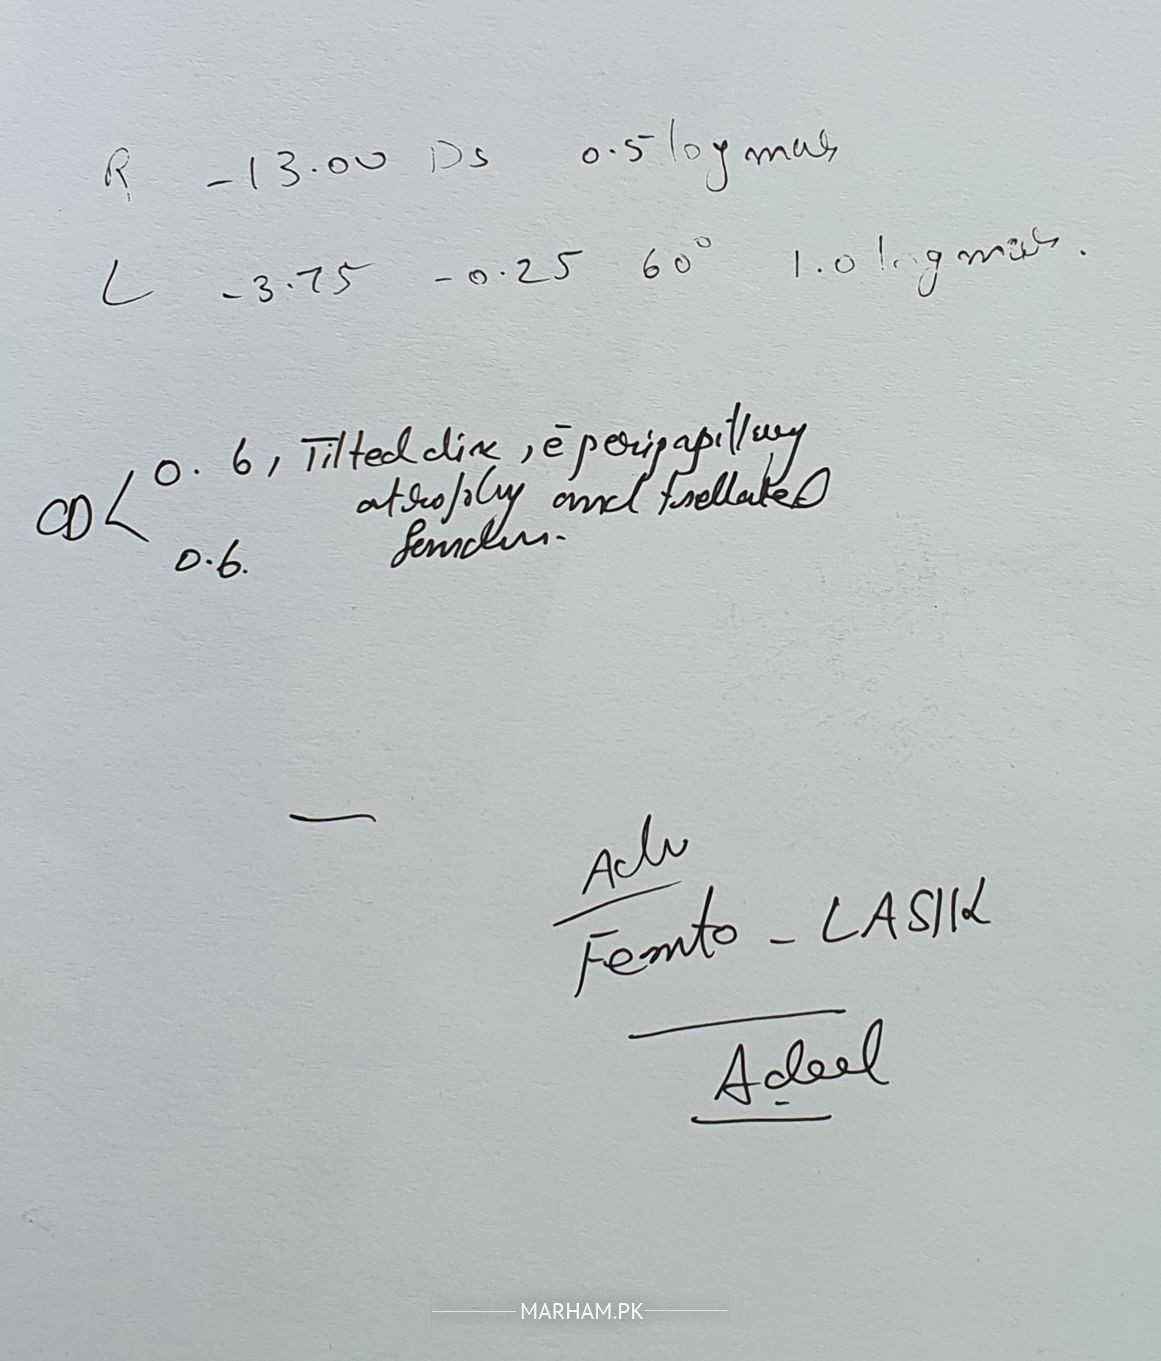 R -13.00 Ds 0.5 logmar
L -3.75 -0.25 60° 1.0 logmar.
CD < 0.6, Tilted disc, c̄ peripapillary
atrophy and tesellated
fundus.
0.6.
Adv
Femto - LASIK
Adeel
MARHAM.PK